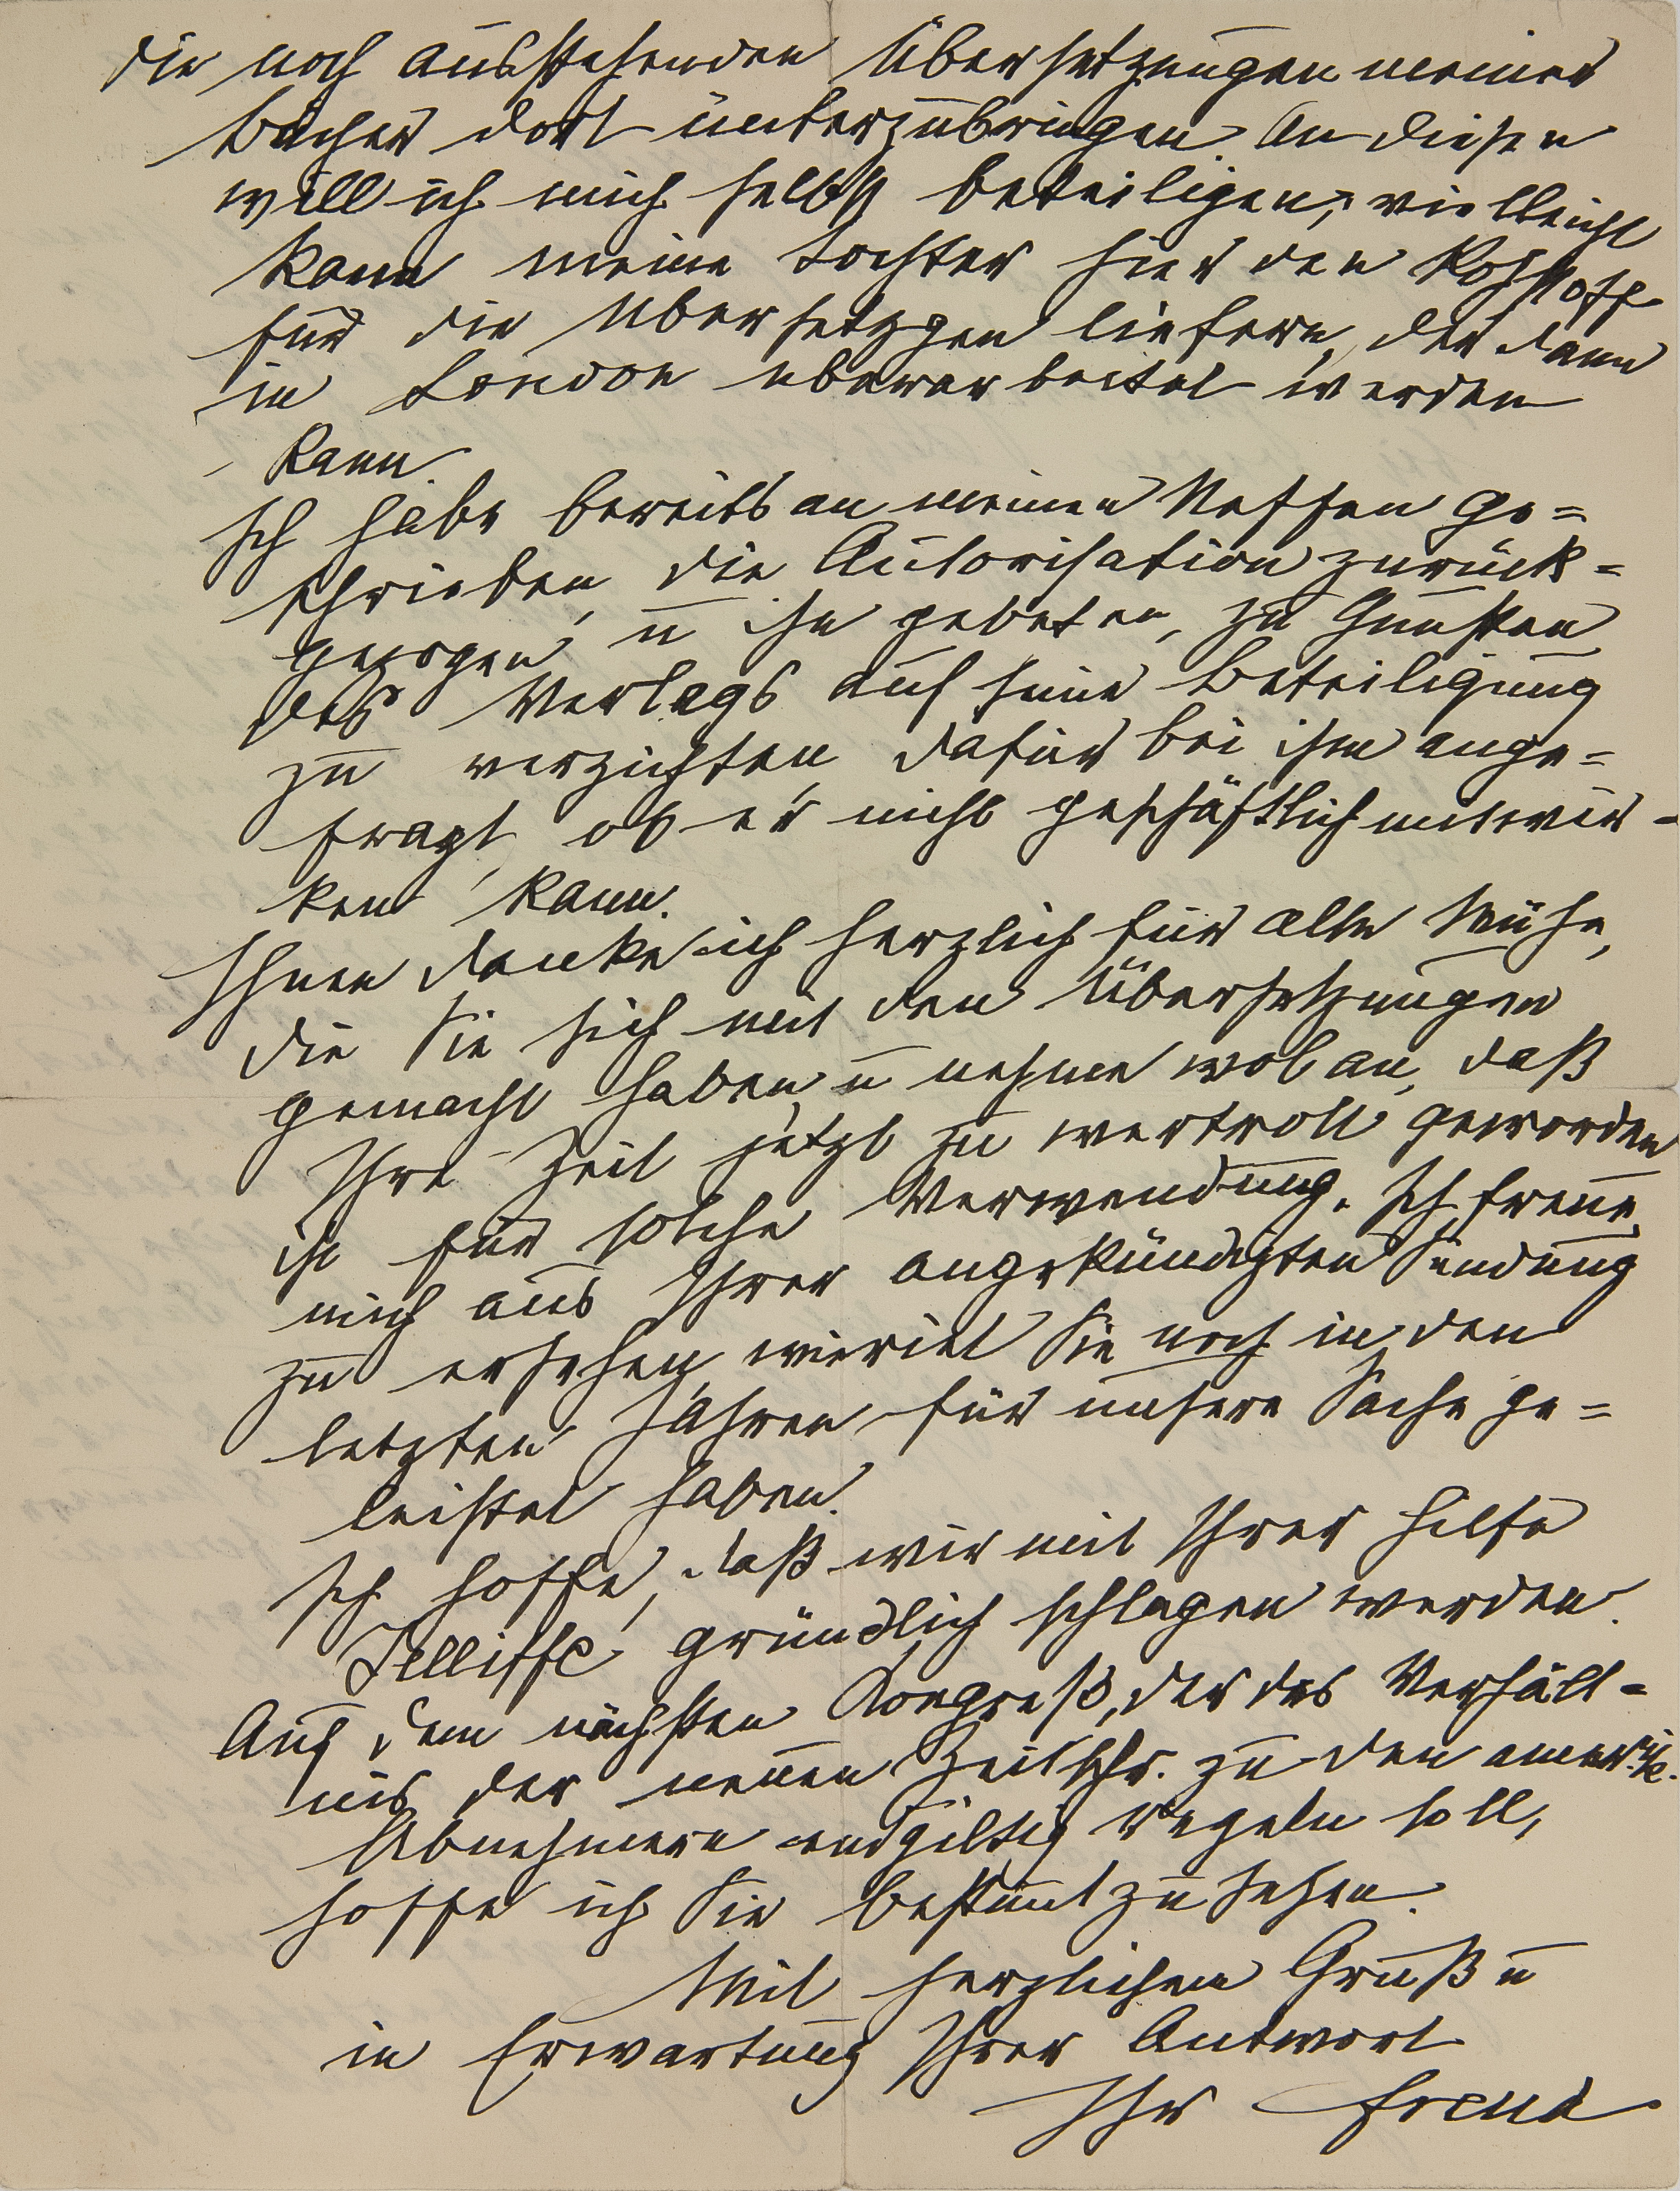 die noch ausstehenden Übersetzungen meiner
Bücher dort unterzubringen. An diesen
will ich mich selbst beteiligen, vielleicht
kann meine Tochter hier den Rohstoff
für die Übersetzgen liefern, der dann
in London überarbeitet werden
kann.
Ich habe bereits an meinen Neffen ge=
schrieben, die Autorisation zurück=
gezogen, u ihn gebeten, zu Gunsten
des Verlags auf seine Beteiligung
zu verzichten, dafür bei ihm ange=
fragt, ob er nicht geschäftlich mitwir-
ken kann.
Ihnen danke ich herzlich für alle Mühe,
die Sie sich mit den Übersetzungen
gemacht haben, u nehme wol an, daß
Ihre Zeit jetzt zu wertvoll geworden
ist für solche Verwendung. Ich freue
mich aus Ihrer angekündigten Sendung
zu ersehen, wieviel Sie noch in den
letzten Jahren für unsere Sache ge=
leistet haben.
Ich hoffe, daß wir mit Ihrer Hilfe
Jelliffe gründlich schlagen werden.
Auf dem nächsten Kongreß, der das Verhält=
nis der neuen Zeitschr. zu den amerik.
Abnehmern endgiltig regeln soll,
hoffe ich Sie bestimt zu sehen.
Mit herzlichem Gruß u
in Erwartung Ihrer Antwort
Ihr Freud